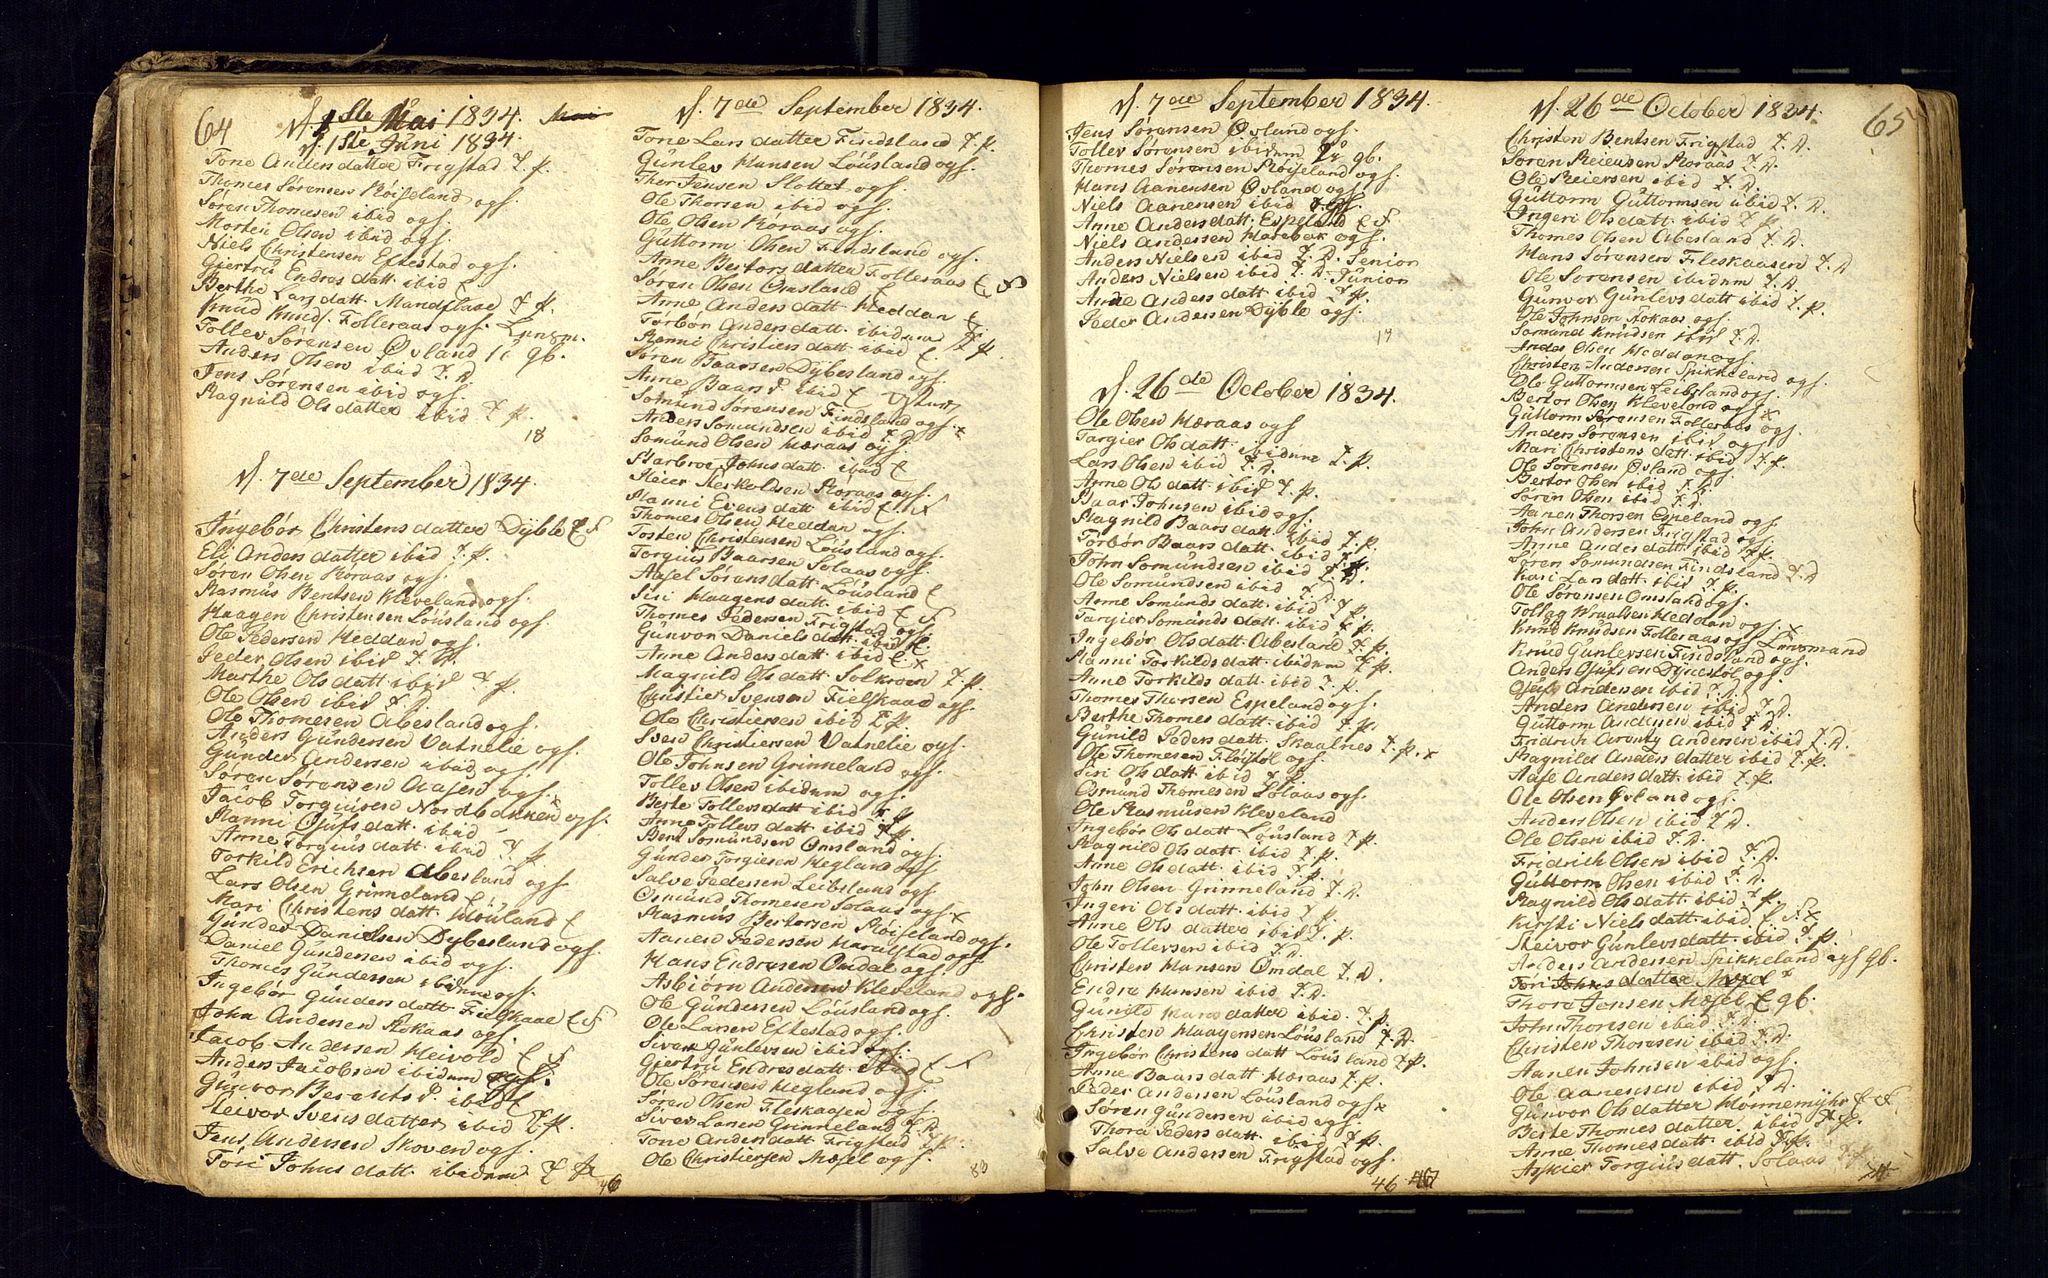 64
d. 1ste Mai 1834.
d. 1ste Juni 1834
Tone Anders datter Frigstad T. p.
Thomes Sørensen Røiseland ogs.
Søren Thomesen ibid ogs.
Morten Olsen ibid ogs.
Niels Christensen Eftestad ogs.
Giertrü Endres datt. ibid
Berthe Lars datt. Mandflaae T. p.
Knüd Knuds. Folleraas ogs. Lensm.
Tollev Sørensen Øvland gb.
Anders Olsen ibid T. D
Jens Sørensen ibid ogs.
Ragnild Ols datter ibid T. p.
18
d. 7de September 1834.
Ingebør Christens datter Dÿble
Eli Anders datter ibid T. p.
Søren Olsen Røraas ogs.
Rasmüs Bentsen Kleveland ogs.
Haagen Christensen Løüsland ogs.
Ole Pedersen Heddan ogs.
Peder Olsen ibid T. D.
Marthe Ols datt ibid T. p.
Ole Olsen ibid T.
Ole Thomesen Abesland ogs.
Anders Gündersen Vatnelie ogs.
Günder Andersen ibid ogs.
Søren Sørensen Aasen ogs.
Jacob Torgiüsen Nordbakken ogs.
Ranni Osüfs datt. ibid
Anne Torgiüs datt. ibid T p
Torkild Erichsen Abesland ogs
Lars Olsen Grinneland
Mari Christens datt. Løüland
Günder Danielsen Dÿbesland ogs.
Daniel Gündersen ibid ogs.
Thomes Gündersen ibidum ogs.
Ingebør Günders datt. Fielskaae
John Andersen Røkaas ogs.
Jacob Andersen Heivold
Anders Jacobsen ibidum ogs.
Günvor Berents d. ibid
Steivor Svens datter ibid T. p.
Jens Andersen Skoven ogs.
Tøri Johns datt. ibidum T. p.
46
d. 7de September 1834.
Tone Lars datter Findsland T. p.
Günlev Hansen Løüsland ogs.
Thor Jensen Slottet ogs.
Ole Thorsen ibid ogs.
Ole Olsen Røraas ogs.
Güttorm Olsen Findsland ogs.
Anne Bertors datter Folleraas
Søren Olsen Omsland
Anne Anders datt. Heddan
Tørbør Anders datt. ibidum T p.
Ranni Christiens datt. ibid
Søren Baarsen Dybesland ogs.
Anne Baars d. ibid
Somünd Sørensen Findsland ogs.
Anders Somundsen ibid T. D
Somünd Olsen Høraas ogs.
Starbroe Johns datt. ibid
Reier Reskoldsen Røraas ogs.
Ranni Evens datt ibid
Thomes Olsen Heddan ogs.
Tosten Christensen Løüsland ogs.
Torgiüs Baarsen Solaas ogs.
Aasel Sørens datt. Løüsland
Siri Haagens datt. ibid
Thomes Pedersen Frigstad ogs.
Günvor Daniels datt. ibid
Anne Anders datt. ibid
Magnild Ols datt. Solkroen T. p.
Christier Svensen Fielskaae ogs.
Ole Christiersen ibid T. p.
Sven Christiersen Vatnelie ogs.
Ole Johnsen Grinneland ogs.
Tollev Olsen ibidum ogs.
Berte Tollevs datt ibid T. p
Anne Tollevs datt ibid T. p.
Bent Somündsen Omsland ogs.
Günder Torgiesen Hegland ogs
Salve Pedersen Leibsland ogs.
Osmünd Thomesen Solaas ogs.
Rasmüs Bertorsen Røiseland ogs.
Aanen Pedersen Haraldstad ogs
Hans Endresen Omdal ogs.
Asbiørn Andersen Kleveland ogs.
Ole Gündersen Løüsland ogs.
Ole Larsen Eftestad ogs.
Siver Günlevsen ibid ogs.
Giertrü Endres datt. ibid
Ole Sørensen Hegland ogs.
Søren Olsen Fleskaasen ogs.
Siver Larsen Grinneland T. D.
Tone Anders datt Frigstad T. p.
Ole Christiersen Mæsel ogs.
80
d. 7de September 1834.
Jens Sørensen Øvland ogs.
Tollev Sørensen ibidum gb.
Thomes Sørensen Røiseland ogs.
Hans Aanensen Øvland ogs
Niels Aanensen ibid
Anne Anders datt. Espeland
Niels Andersen Harebak ogs.
Anders Nielsen ibid T. D. Senior
Anders Nielsen ibid T. D. Junior
Anne Anders datt ibid T. p.
Peder Andersen Dÿble ogs.
17
d. 26de October 1834.
Ole Olsen Høraas ogs
Targier Ols datt. ibidum T. p.
Lars Olsen ibid T. D.
Anne Ols datt ibid T. p.
Baar Johnsen ibid ogs.
Ragnild Baars datt. ibid T. p.
Tørbør Baars datt. ibid T. p.
John Somündsen ibid T. D.
Ole Somündsen ibid T. D.
Anne Somünds datt. ibid T p.
Targier Somünds datt. ibid T. p.
Ingebør Ols datt. Abesland T. p.
Ranni Torkilds datt. ibidum T. p.
Anne Torkilds datt. ibid T. p.
Thomes Thorsen Espeland ogs.
Berthe Thomes datt. ibid T. p.
Günild Peders datt. Skaalnes T. p.
Ole Thomesen Fløÿstøl ogs.
Siri Ols datt ibid T. p
Osmünd Thomesen Solaas ogs.
Ole Rasmüsen Kleveland
Ingebør Ols datt Løüsland T. p.
Ragnild Ols datt. ibid T. p.
Anne Ols datt. ibid T. p.
John Olsen Grinneland T. D
Ingeri Ols datt. ibid T. p.
Anne Ols datter ibid T. p.
Ole Tollevsen ibid T. D.
Christen Hansen Omdal T. D.
Endre Hansen ibid T. D.
Günild Hans datter ibid. T. p.
Christen Haagensen Løüsland T. D.
Ingebør Christens datt. Løüsland T. p.
Anne Baars datt Høraas T. p.
Peder Andersen Løüsland ogs
Søren Gündersen ibid ogs.
Thora Peders datt. ibid T. p
Salve Andersen Frigstad ogs.
46
d. 26de October 1834.
65
Christen Bentsen Frigstad T. D.
Søren Reiersen Røraas T. D.
Ole Reiersen ibid T. D.
Güttorm Güttormsen ibid T. D.
Ingeri Ols datt. ibid T. p.
Thomes Olsen Abesland T. D.
Hans Sørensen Fleskaasen T. D
Ole Sørensen ibidum T. D.
Günvor Günlevs datt ibid T. p.
Ole Johnsen Røkaas ogs.
Somund Knüdsen ibid T. D.
Andes Olsen Heddan ogs.
Christen Andersen Spikkeland ogs.
Ole Güttormsen Leibsland ogs.
Bertor Olsen Kleveland ogs
Güttorm Sørensen Folleraas ogs.
Anders Sørensen ibid ogs
Mari Christens datt. ibid T. p.
Ole Sørensen Øvland ogs.
Bertor Olsen ibid T. D.
Søren Olsen ibid T. D.
Aanen Thorsen Espeland ogs.
John Andersen Frigstad ogs.
Anne Anders datt. ibid T. p.
Søren Somundsen Findsland T. D
Kari Lars datt. ibid T. p.
Ole Sørensen Omsland ogs.
Tollag Wraalsen Heddan ogs.
Knüd Knüdsen Folleraas ogs Lensmand
Knud Günlevsen Findsland ogs.
Anders Osüfsen Dÿrestøl ogs.
Osüf Andersen ibid T. D.
Anders Andersen ibid T. D.
Güttorm Andersen ibid T. D.
Fridrich Arentz Andersen ibid T. D.
Ragnild Anders datter ibid T. p.
Aase Anders datt. ibid T. p.
Ole Olsen Øvland ogs.
Anders Olsen ibid T. D.
Ole Olsen ibid T. D.
Fridrich Olsen ibid T. D.
Güttorm Olsen ibid T. D.
Ragnild Ols datt. ibid T. p.
Kirsti Niels datt. ibid
Steivor Günlevs datt. ibid T. p.
Anders Andersen Spikkeland ogs gb.
Tøri Johns datter Mæsel
Thora Jensen Mæsel gb.
John Thorsen ibid T. D.
Christen Thorsen ibid T. D.
Aanen Johnsen ibid ogs.
Ole Aanensen ibid T. D.
Günvor Ols datter Hønnemÿhr
Berte Thomes datter ibid T. p.
Anne Thomes datt. ibid T. p.
Askier Torgiüs datt. Solaas